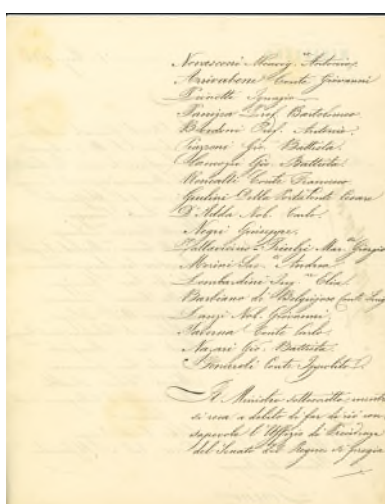 Novasconi Monsig.r Antonio,
Arrivabene Conte Giovanni
Prinetti Ignazio
Panizza Prof. Bartolomeo
Bordoni Prof. Antonio
Piazzoni Gio. Battista
Gio. Battista
Roncalli Conte Francesco
Giulini Della Porta Conte Cesare
D'Adda Nob. Carlo
Negri Giuseppe
Pallavicino-Trivulzi Mar. Giorgio
Andrea
Lombardini Ing.re Elia
Barbiano di Belgiojoso Conte Luigi
Lanzi Nob. Giovanni
Taverna Conte Carlo
Nazari Gio. Battista
Conte Ippolito
Il Ministro sottoscritto
si reca a debito di far di ciò con
sapevole l'Uffizio di Presidenza
del Senato del Regno, e si pregia